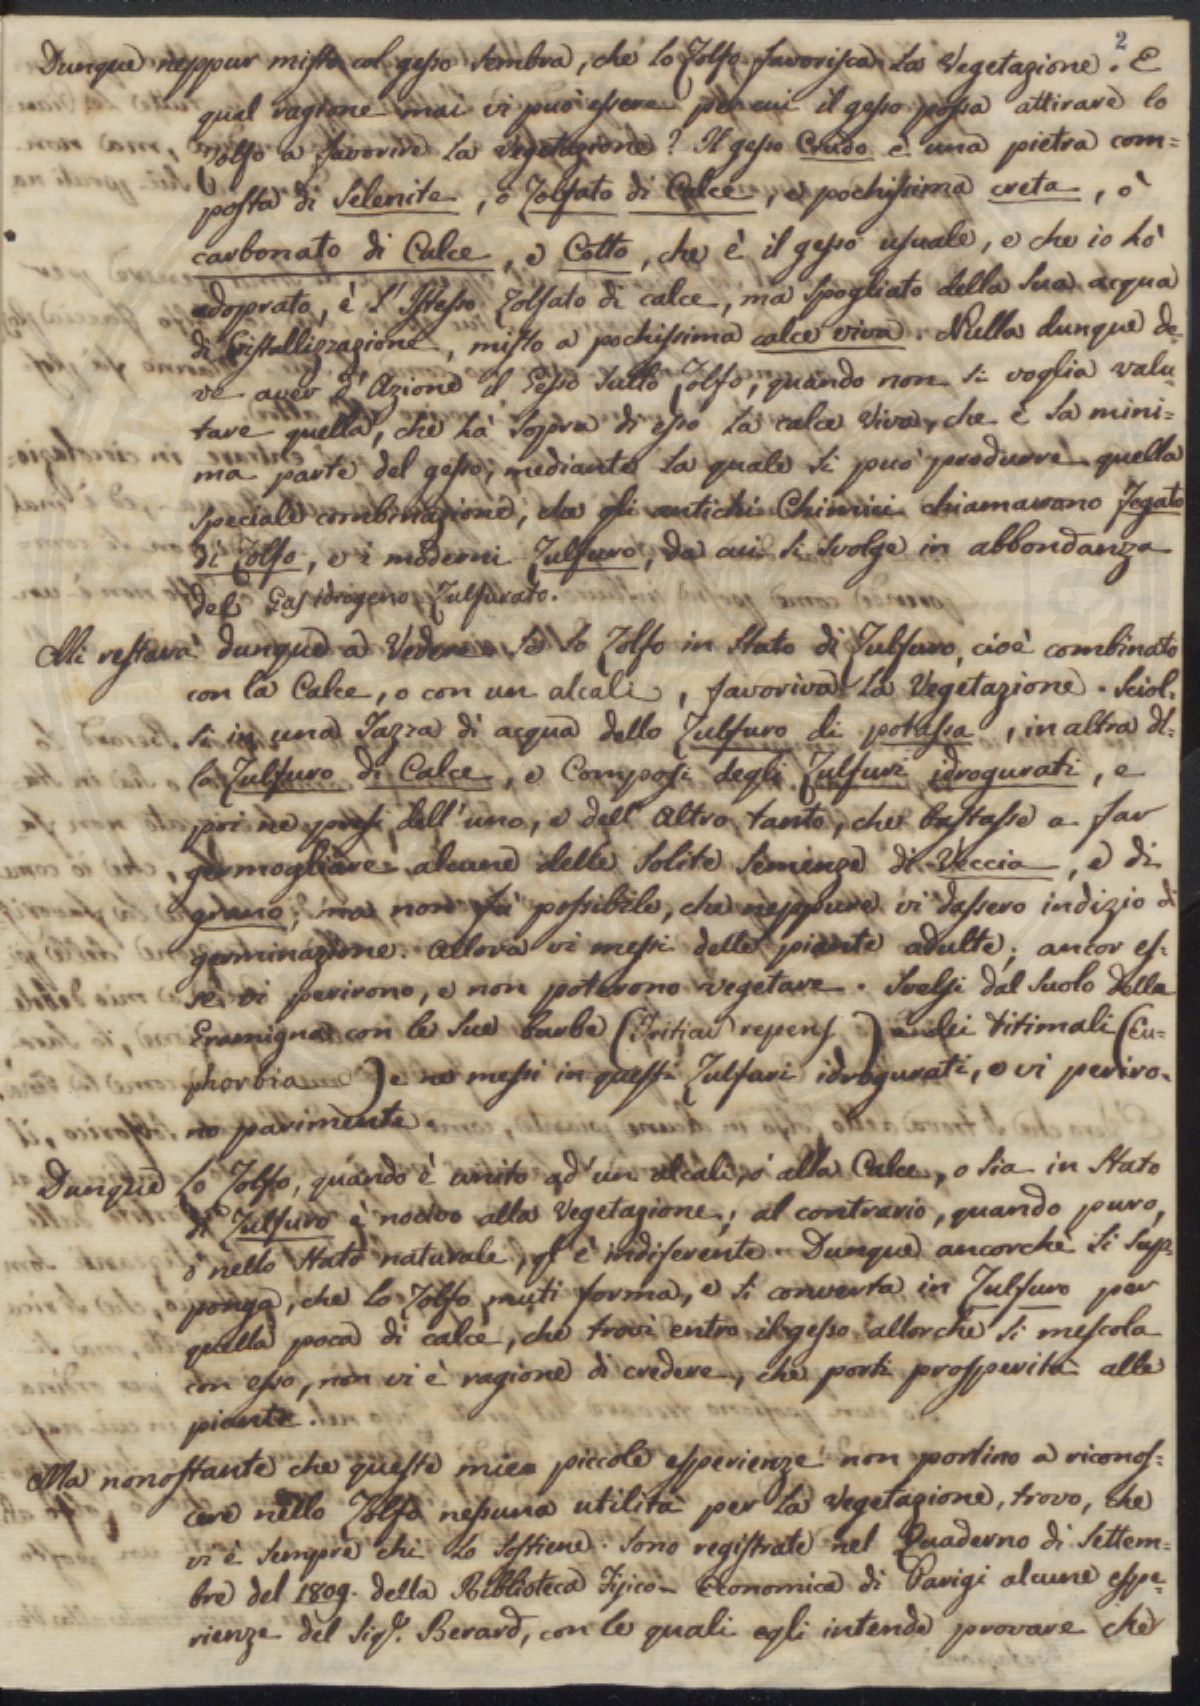 2
Dunque neppur misto col gesso sembra, che lo Zolfo favorisca la Vegetazione. E
qual ragione mai vi può essere per cui il gesso possa attirare lo
Zolfo a favorire la Vegetazione? Il gesso Crudo è una pietra com=
posta di Selenite, ò Zolfato di Calce, e pochissima creta, ò
carbonato di Calce, e Cotto, che è il gesso usuale, e che io hò
adoprato, è l'Istesso Zolfato di calce, ma spogliato della sua acqua
di Cristallizzazione, misto a pochissima calce viva. Nulla dunque de=
ve aver d'Azione il Gesso sullo Zolfo, quando non si voglia valu=
tare quella, che hà sopra di esso la calce Viva, che è la mini=
ma parte del gesso, mediante la quale si può produrre quella
speciale combinazione, che gli antichi Chimici chiamavano Fegato
di Zolfo, e i moderni Zulfuro, da cui si svolge in abbondanza
del Gas idrogeno Zulfurato.
Mi restava dunque a Vedere se lo Zolfo in stato di Zulfuro, cioè combinato
con la Calce, o con un alcali, favoriva la Vegetazione. Sciol=
si in una Tazza di acqua dello Zulfuro di potassa, in altra del=
lo Zulfuro di Calce, e Composi degli Zulfuri idrogurati, e
poi ne presi dell'uno, e dell'Altro tanto, che bastasse a far
germogliare alcune delle solite semenze di Veccia, e di
grano; ma non fù possibile, che neppure vi dassero indizio di
germinazione. Allora vi messi delle piante adulte; ancor es=
se vi perirono, e non poterono vegetare. Svelsi dal suolo della
Gramigna con le sue barbe (Triticum repens) e dei titimali (Eu=
phorbia) e ne messi in questi Zulfuri idrogurati, e vi periro=
no parimente.
Dunque lo Zolfo, quando è unito ad un alcali, ò alla Calce, o sia in stato
di Zulfuro è nocivo alla Vegetazione; al contrario, quando puro,
ò nello stato naturale, gl'è indiferente. Dunque ancorchè si sup=
ponga, che lo Zolfo muti forma, e si converta in Zulfuro per
quella poca di calce, che trovi entro il gesso allorchè si mescola
con esso, non vi è ragione di credere, che porti prosperità alle
piante.
Ma nonostante che queste mie piccole esperienze non portino a riconos=
cere nello Zolfo nessuna utilità per la vegetazione, trovo, che
vi è sempre chi lo sostiene. Sono registrate nel Quaderno di Settem=
bre del 1809. della Biblioteca Fisico-Economica di Parigi alcune espe=
rienze del Sig.r Berard, con le quali egli intende provare che